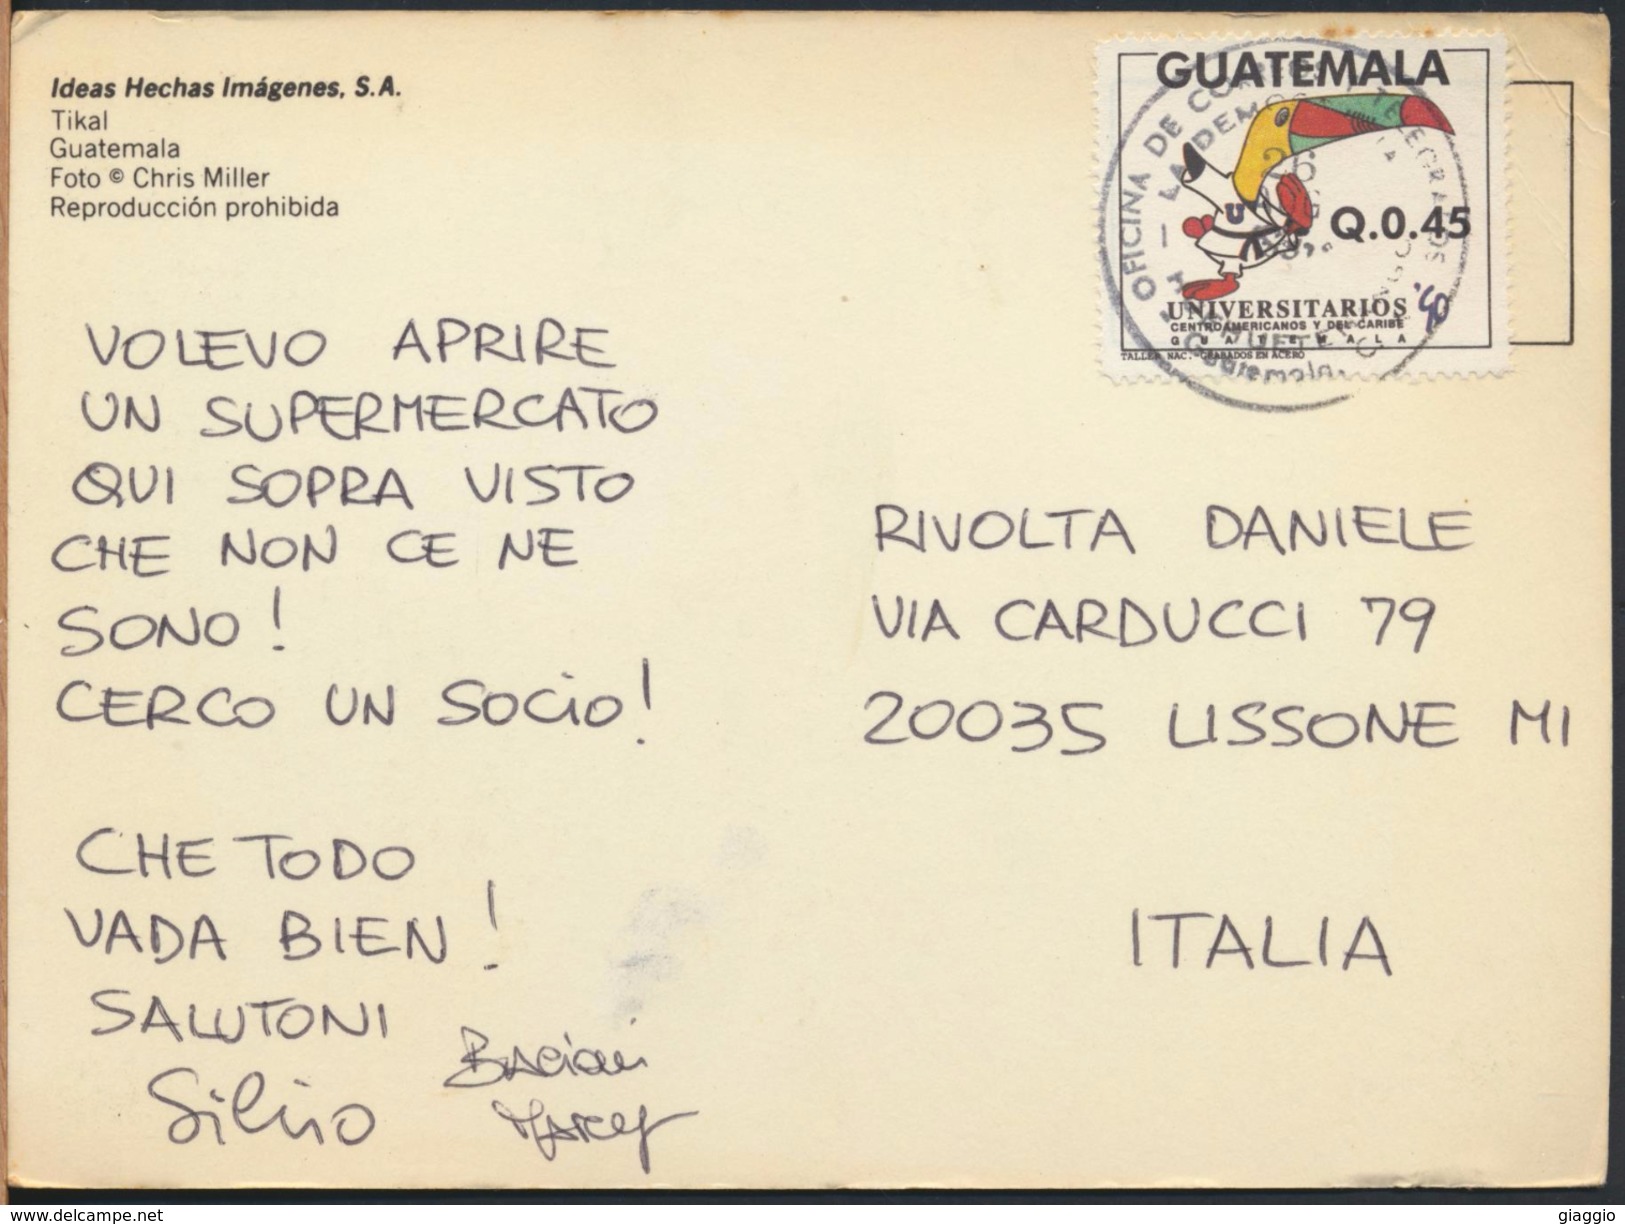 Ideas Hechas Imágenes, S.A.
Tikal
Guatemala
Foto © Chris Miller
Reproducción prohibida
GUATEMALA
Q.0.45
UNIVERSITARIOS '90
CENTROAMERICANOS Y DEL CARIBE
GUATEMALA
TALLER NAC.-GRABADOS EN ACERO
OFICINA DE CORREOS Y TELEGRAFOS
26
Guatemala.
VOLEVO APRIRE
UN SUPERMERCATO
QUI SOPRA VISTO
CHE NON CE NE
SONO!
CERCO UN SOCIO!
CHE TODO
VADA BIEN!
SALUTONI
Silvio
Bacioni
RIVOLTA DANIELE
VIA CARDUCCI 79
20035 LISSONE MI
ITALIA
www.delcampe.net
giaggio